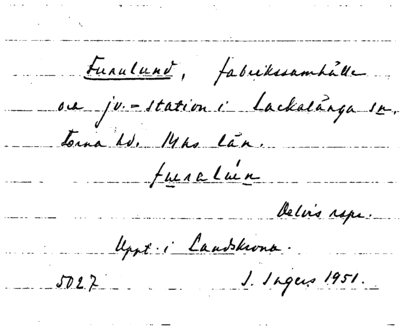 Furulund, fabrikssamhälle
och jv.-station i Lackalänga sn.
Torna hd. Mhs län.
furalúen
Delvis rspr.
Uppt. i Landskrona.
5027 I. Ingers 1951.